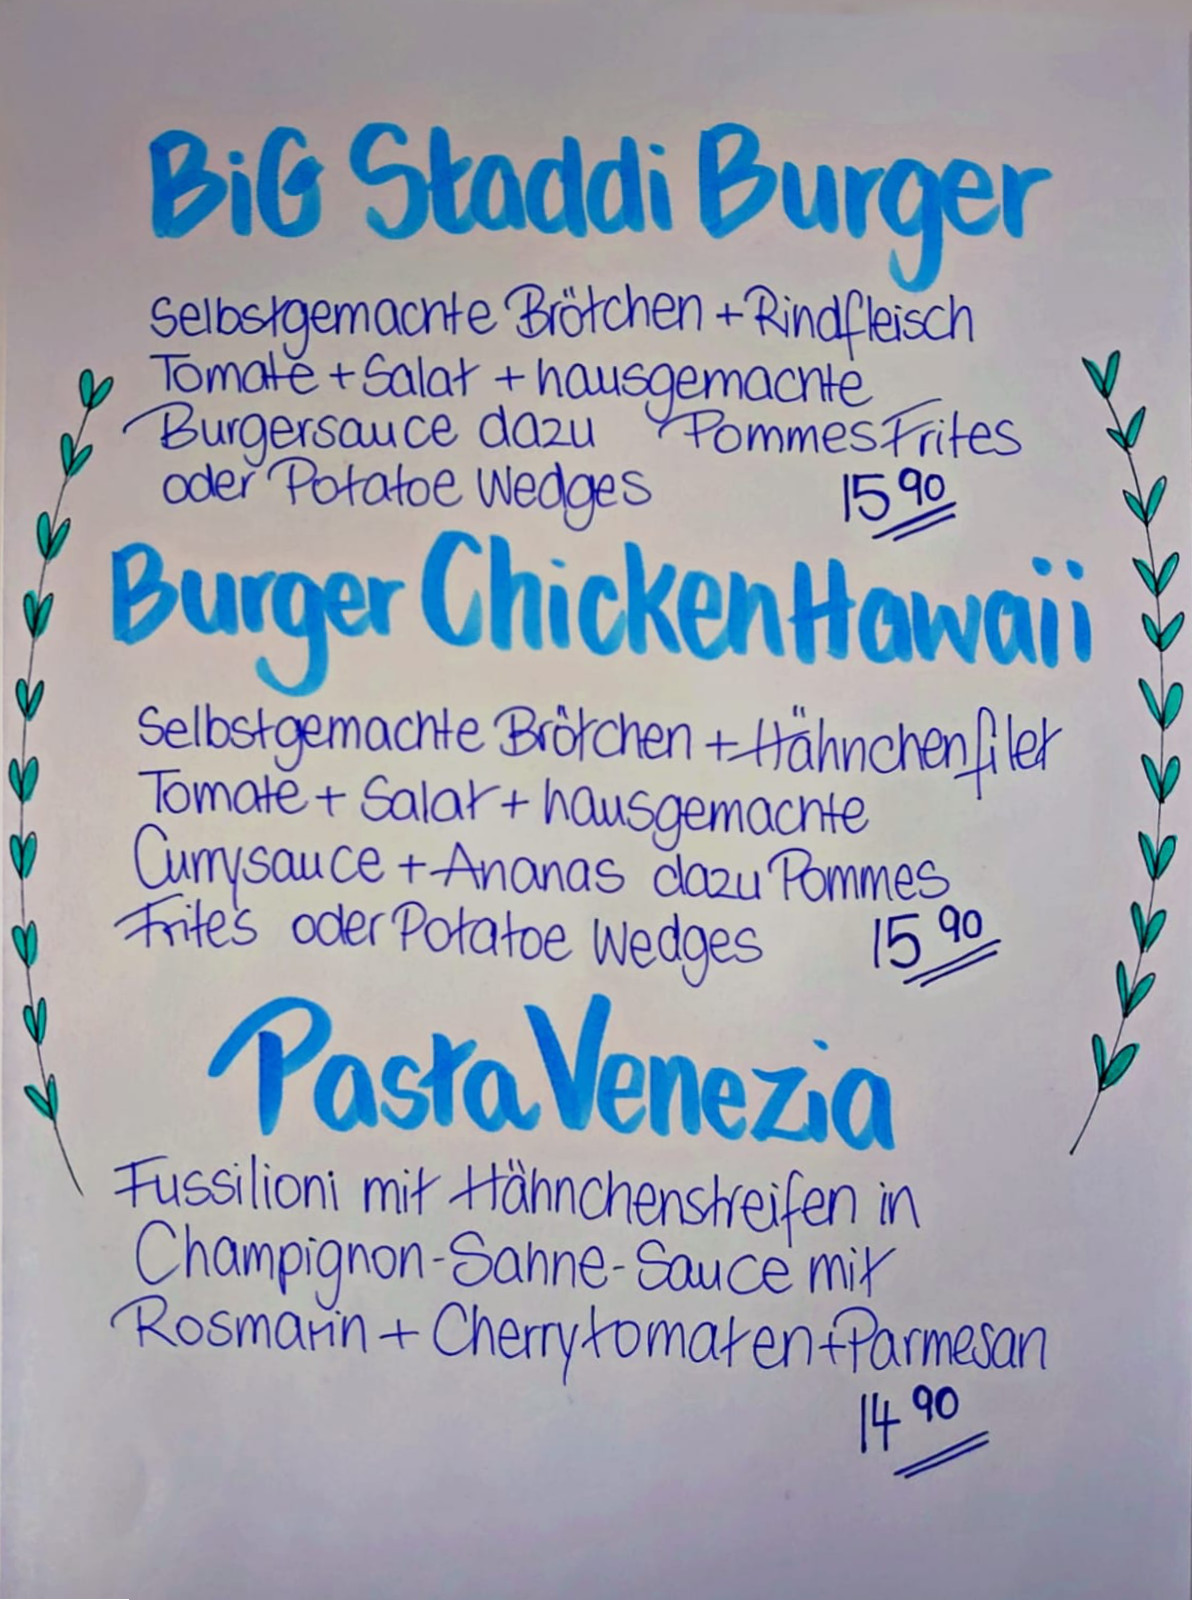 BiG Staddi Burger
Selbstgemachte Brötchen + Rindfleisch
Tomate + Salat + hausgemachte
Burgersauce dazu Pommes Frites
oder Potatoe Wedges 15 90
Burger Chicken Hawaii
Selbstgemachte Brötchen + Hähnchenfilet
Tomate + Salat + hausgemachte
Currysauce + Ananas dazu Pommes
Frites oder Potatoe Wedges 15 90
Pasta Venezia
Fussilioni mit Hähnchenstreifen in
Champignon-Sahne-Sauce mit
Rosmarin + Cherrytomaten + Parmesan
14 90